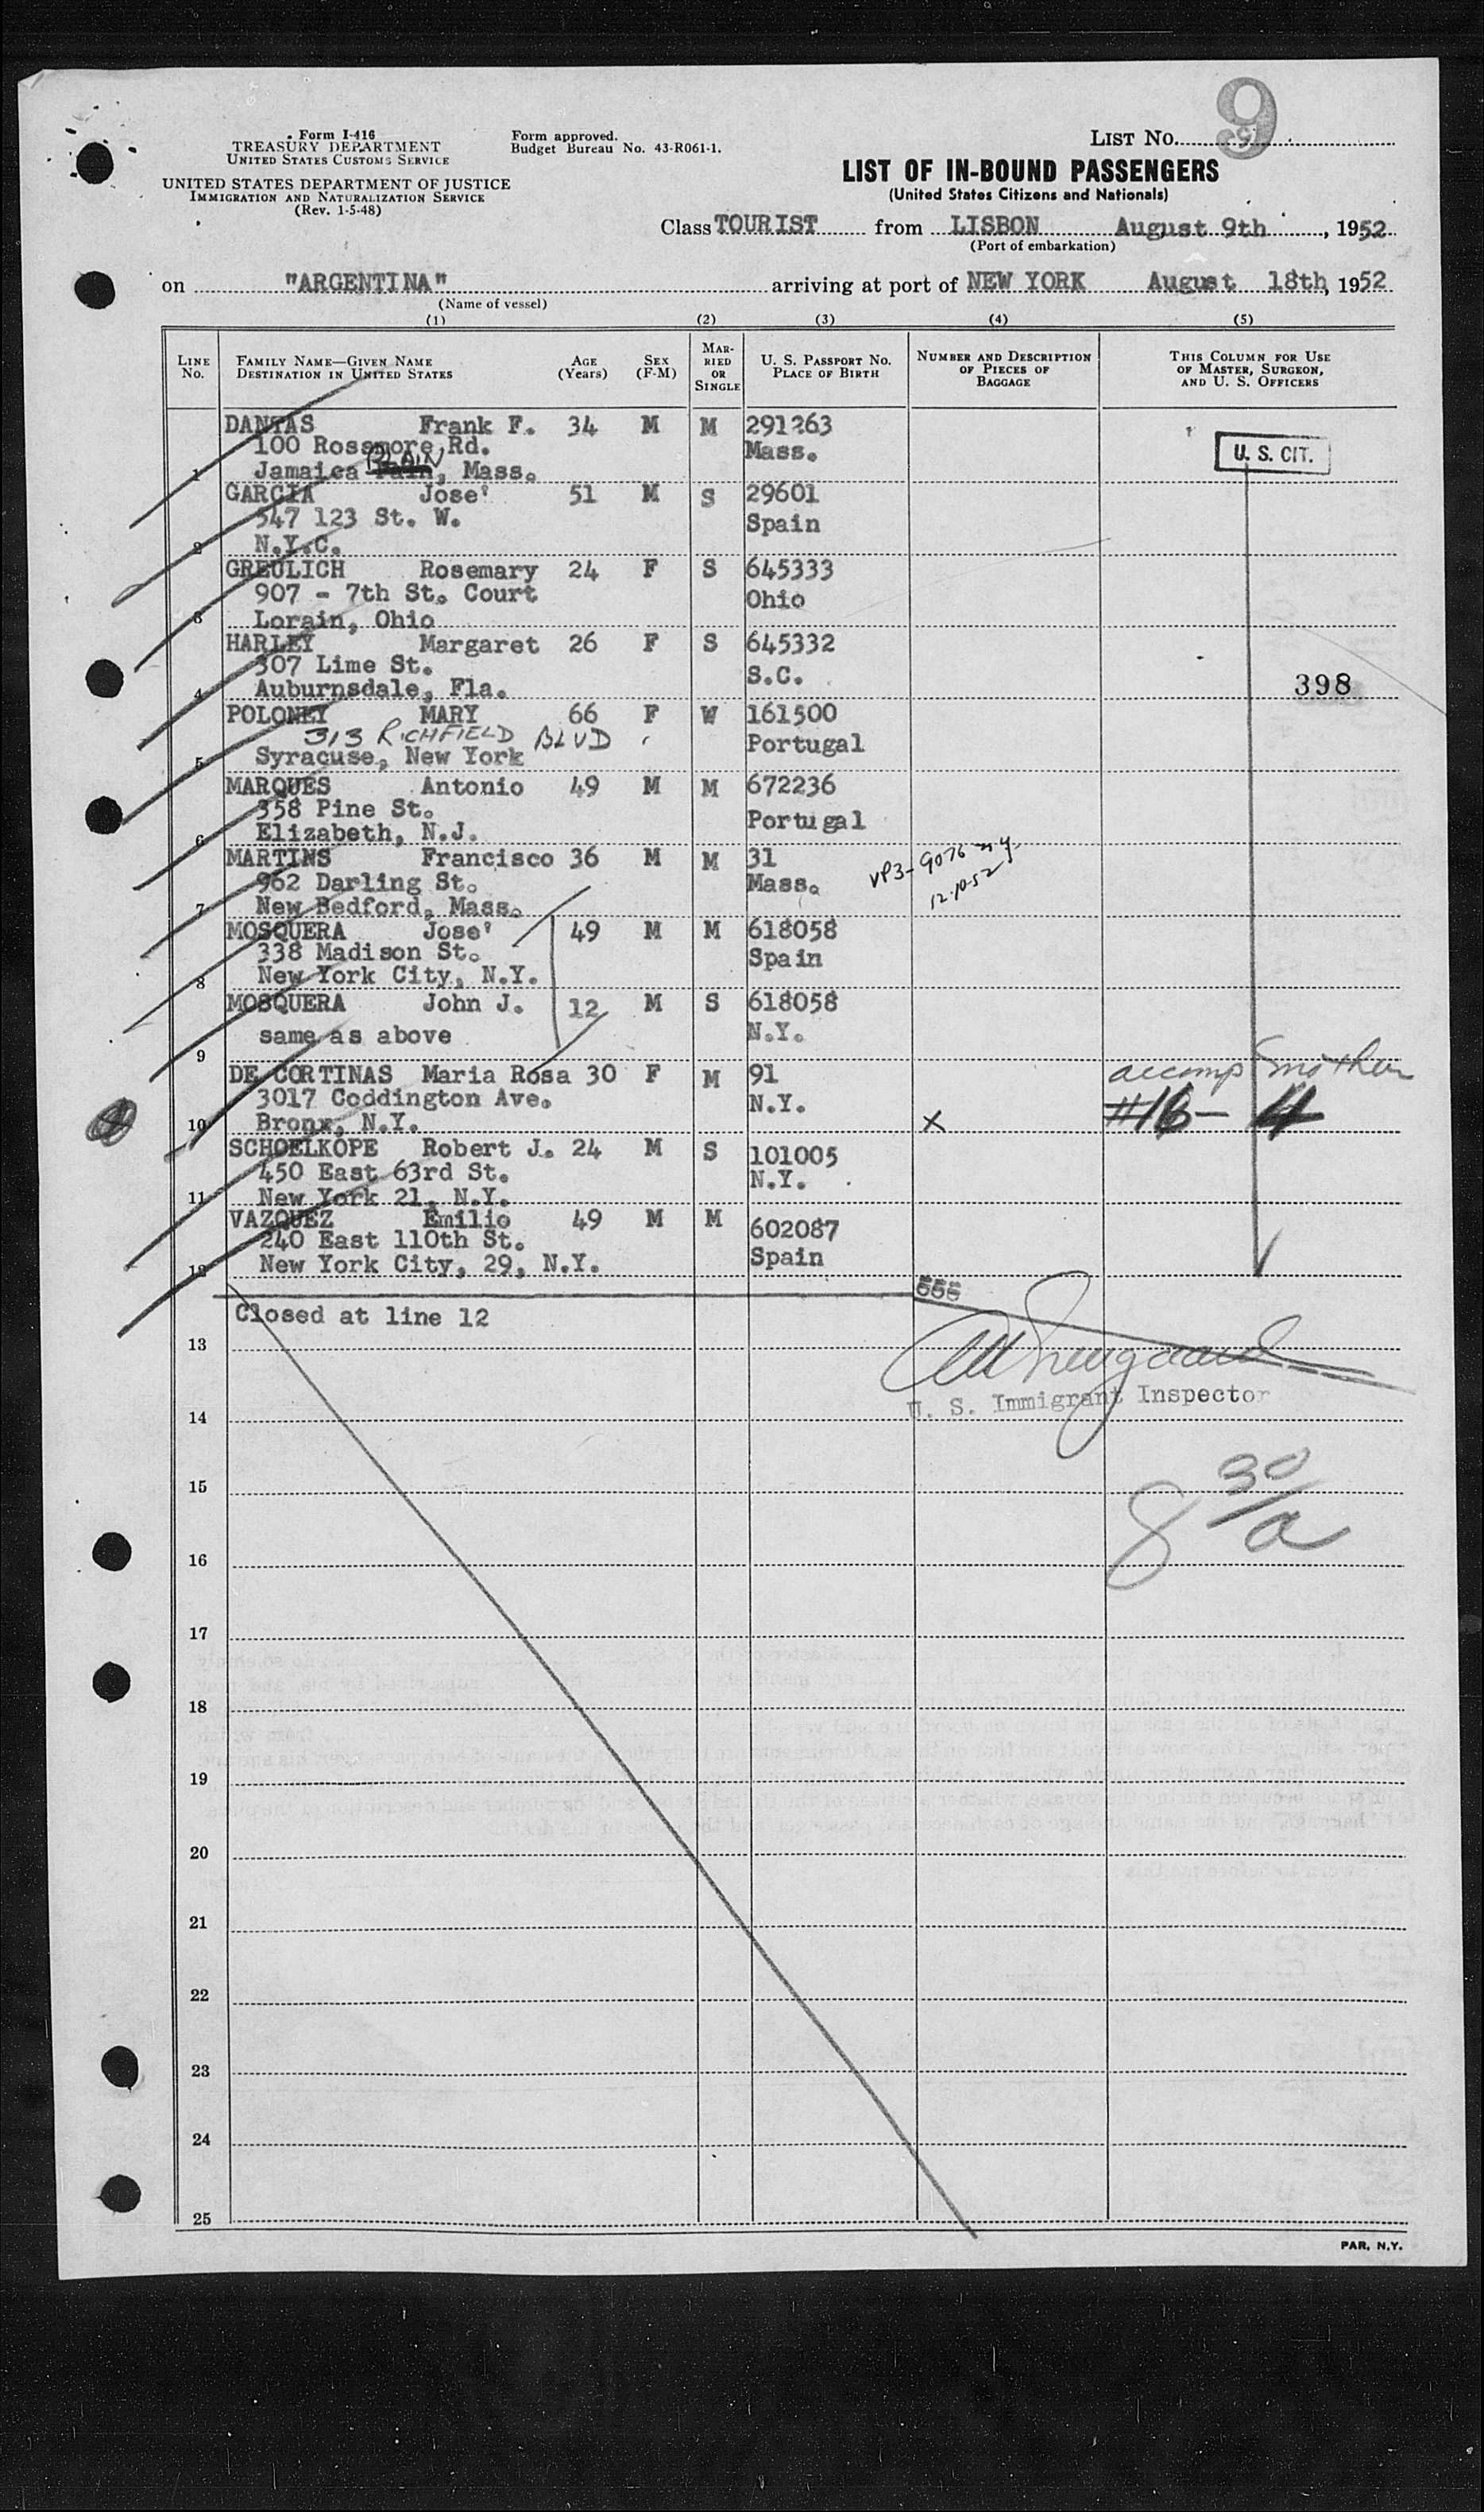 9
Form I-416
TREASURY DEPARTMENT
UNITED STATES CUSTOMS SERVICE
UNITED STATES DEPARTMENT OF JUSTICE
IMMIGRATION AND NATURALIZATION SERVICE
(Rev. 1-5-48)
Form approved.
Budget Bureau No. 43-R061-1.
LIST No. 9
LIST OF IN-BOUND PASSENGERS
(United States Citizens and Nationals)
Class TOURIST from LISBON August 9th, 1952
(Port of embarkation)
on "ARGENTINA" arriving at port of NEW YORK August 18th, 1952
(Name of vessel)
(1) (2) (3) (4) (5)
LINE No. FAMILY NAME—GIVEN NAME DESTINATION IN UNITED STATES AGE (Years) SEX (F-M) MARRIED OR SINGLE U. S. PASSPORT No. PLACE OF BIRTH NUMBER AND DESCRIPTION OF PIECES OF BAGGAGE THIS COLUMN FOR USE OF MASTER, SURGEON, AND U. S. OFFICERS
DANTAS Frank F. 34 M M 291263
100 Rossmore Rd. Mass. U. S. CIT.
1 Jamaica PLAIN, Mass.
GARCIA Jose' 51 M S 29601
547 123 St. W. Spain
2 N.Y.C.
GREULICH Rosemary 24 F S 645333
907 - 7th St. Court Ohio
3 Lorain, Ohio
HARLEY Margaret 26 F S 645332
307 Lime St. S.C.
4 Auburnsdale, Fla. 398
POLONEY MARY 66 F W 161500
313 RICHFIELD BLVD Portugal
5 Syracuse, New York
MARQUES Antonio 49 M M 672236
358 Pine St. Portugal
6 Elizabeth, N.J.
MARTINS Francisco 36 M M 31 VP3-9076 n.y.
962 Darling St. Mass. 12.10.52
7 New Bedford, Mass.
MOSQUERA Jose' 49 M M 618058
338 Madison St. Spain
8 New York City, N.Y.
MOSQUERA John J. 12 M S 618058
same as above N.Y.
9
DE CORTINAS Maria Rosa 30 F M 91 accomp mother
3017 Coddington Ave. N.Y. #16- 4
10 Bronx, N.Y. x
SCHOELKOPE Robert J. 24 M S 101005
450 East 63rd St. N.Y.
11 New York 21, N.Y.
VAZQUEZ Emilio 49 M M 602087
240 East 110th St. Spain
12 New York City, 29, N.Y.
555
Closed at line 12
13
U. S. Immigrant Inspector
14
8 30/a
15
16
17
18
19
20
21
22
23
24
25
PAR, N.Y.